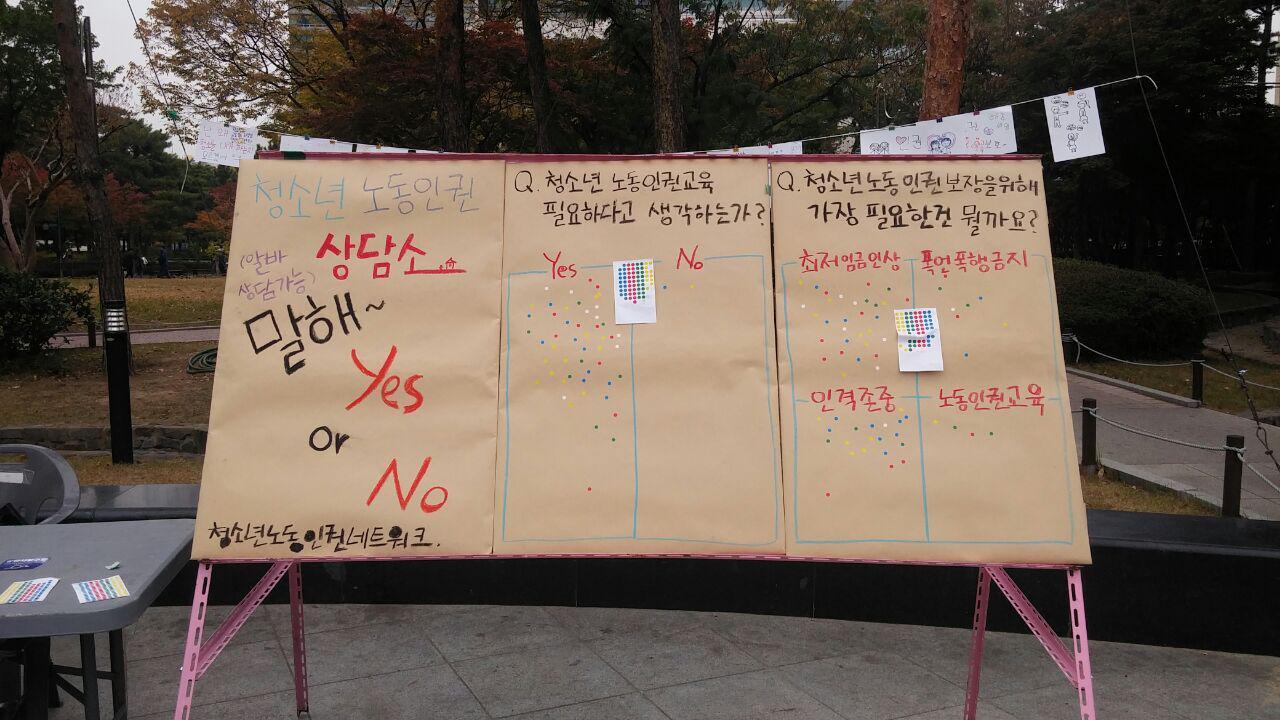 청소년 노동인권
상담소
(알바
상담가능)
말해~
Yes
or
No
청소년노동인권네트워크.
Q. 청소년 노동인권교육
필요하다고 생각하는가?
Yes No
Q. 청소년노동인권보장을위해
가장 필요한건 뭘까요?
최저임금인상 폭언폭행금지
인격존중 노동인권교육
인권